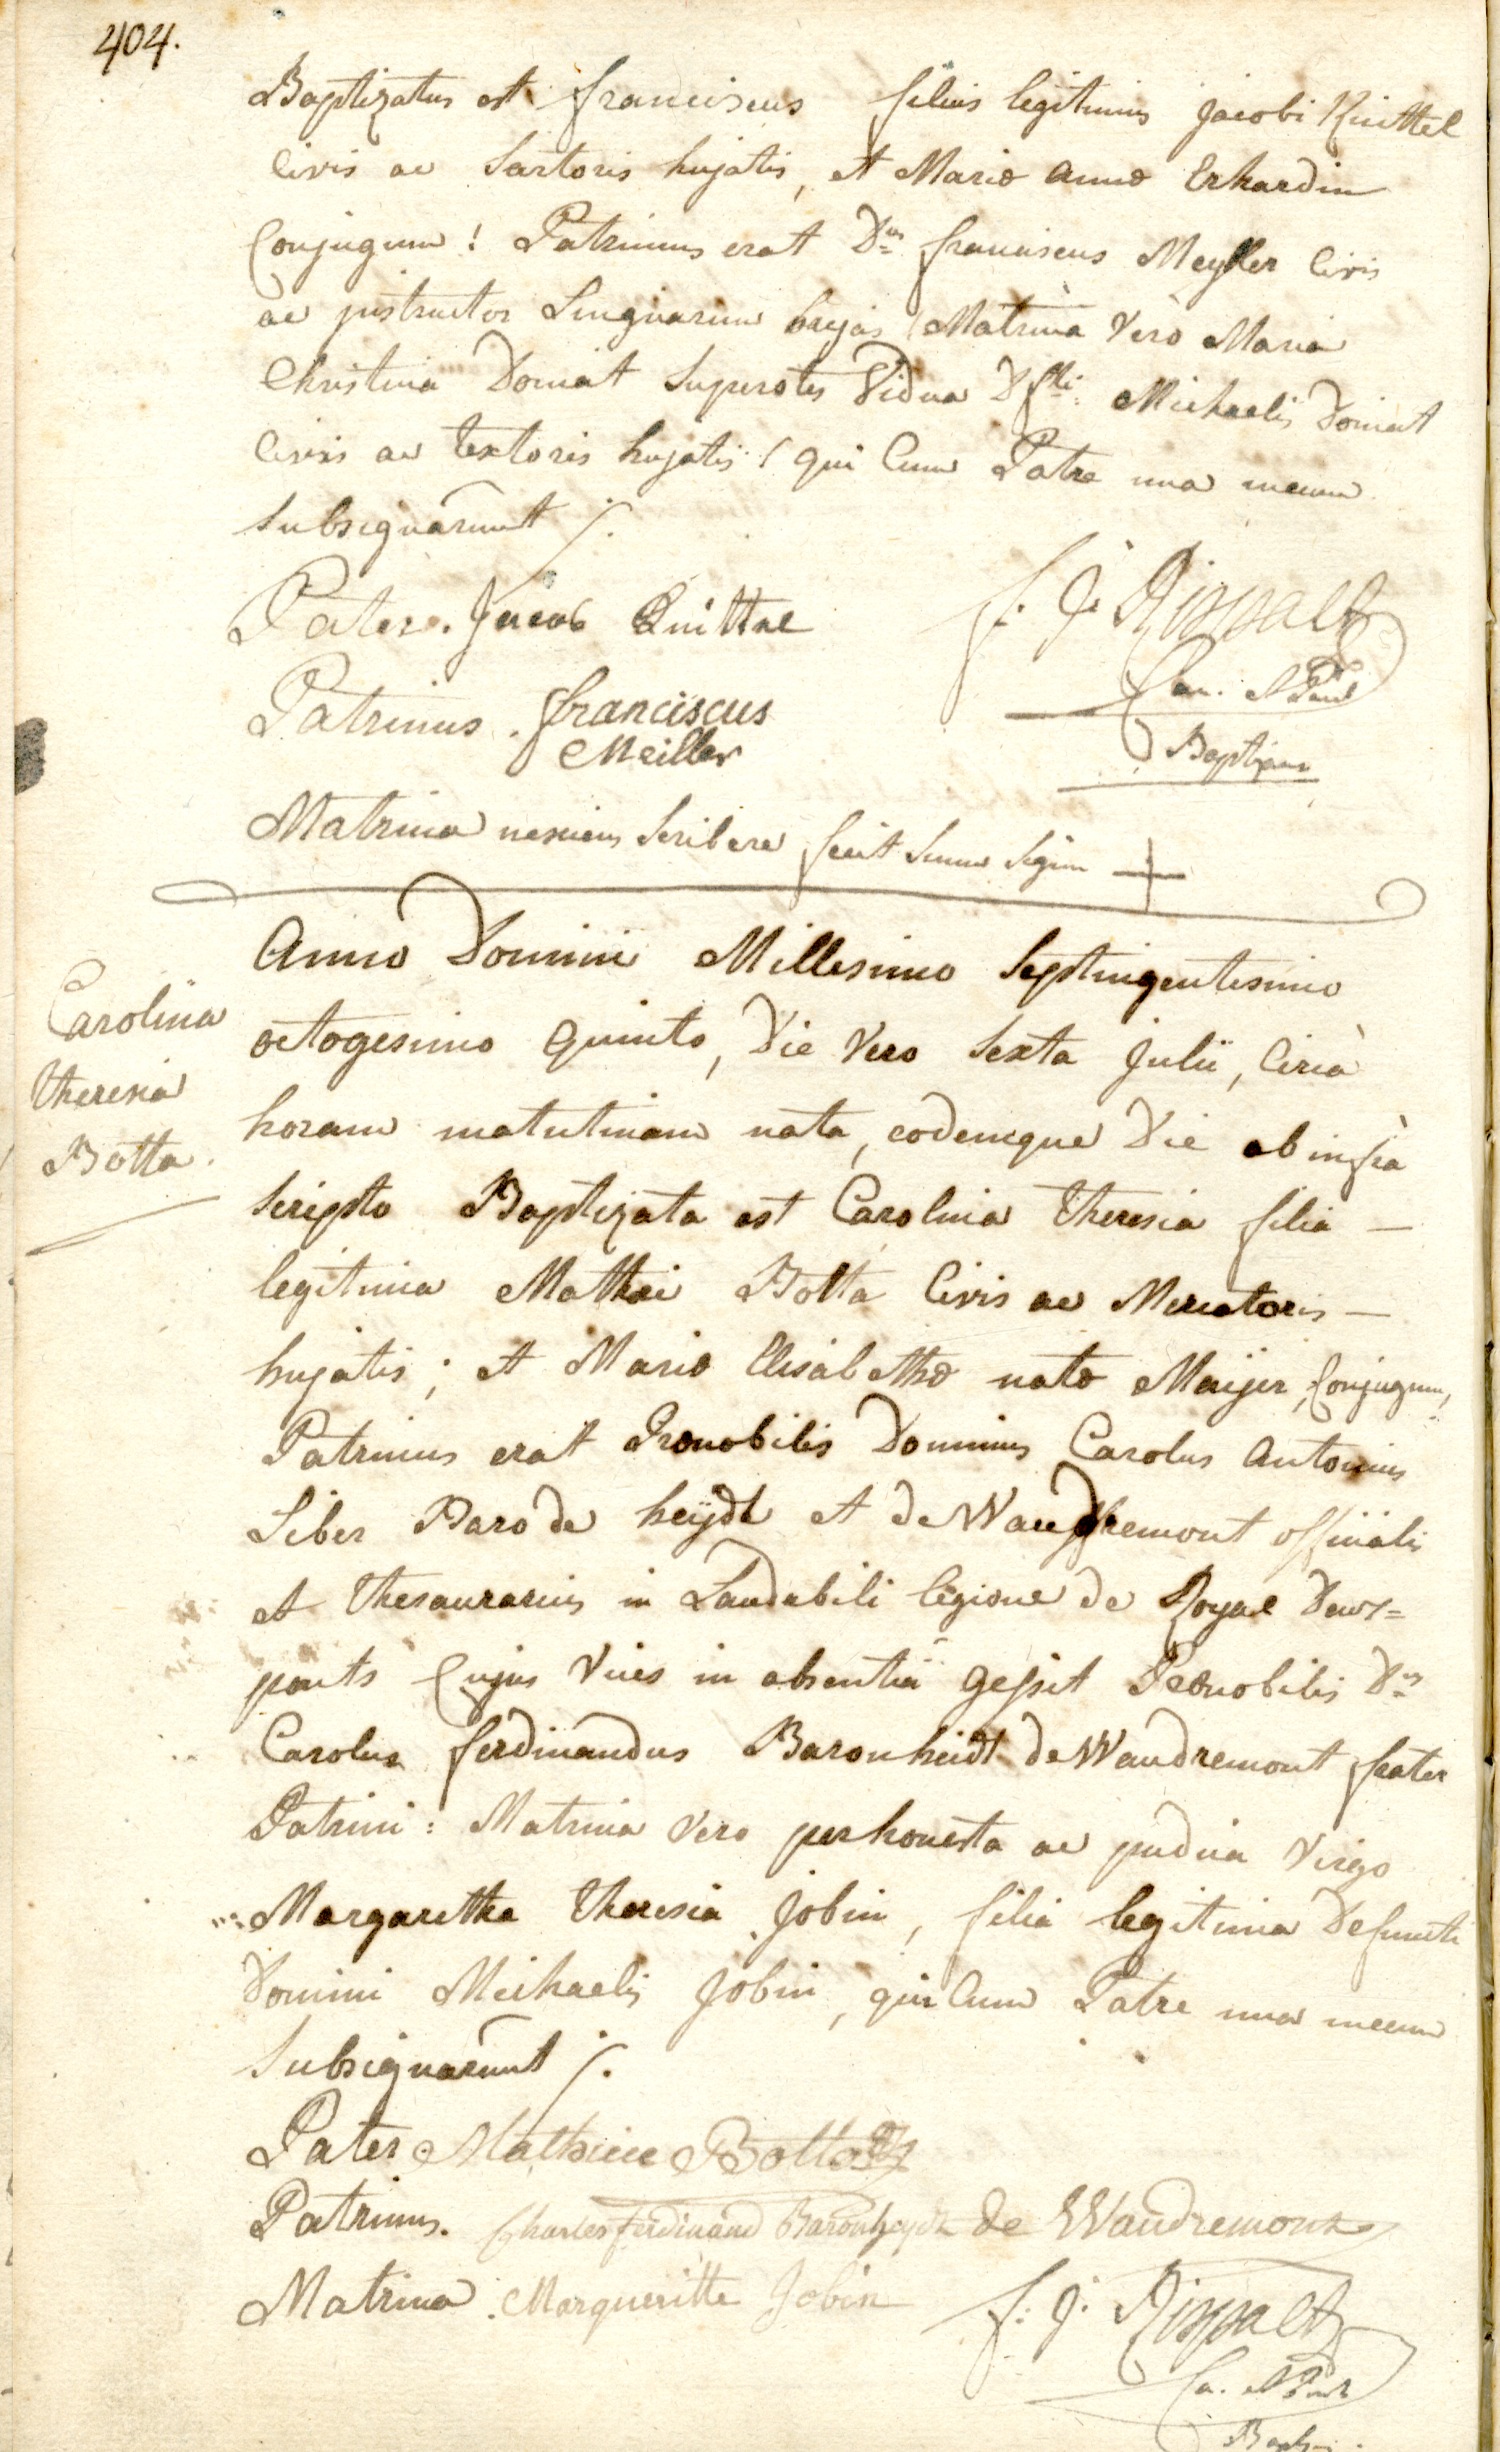 404.
Baptizatus est franciscus filius legitimus Jacobi Knittel
Civis ac Sartoris hujatis, et Mariæ Annæ Erhardin
Conjugum! Patrinus erat Dnus franciscus Meyller Civis
ac instructor Linguarum hujas! Matrina Vero Maria
Christina Domiat Superstes Vidua Dfti. Michaelis Domiat
Civis ac textoris hujatis! qui Cum Patre una mecum
Subsignarunt /.
Pater. Jacob Knittel
F. J. Rippalt
Can. S Paul
Patrinus. franciscus
Meiller
Baptizans
Matrina nesciens Scribere fecit Suum Signum +
Anno Domini Millesimo Septingentesimo
Carolina
octogesimo quinto, Die Vero Sexta Julii, Circà
Theresia
horam matutinam nata, eodemque Die ab infrà
Botta.
Scripto Baptizata est Carolina Theresia filia —
legitima Mathæi Botta Civis ac Mercatoris —
hujatis; et Mariæ Elisabethæ natæ Maijer, Conjugum,
Patrinus erat Prænobilis Dominus Carolus Antonius
Liber Baro de heydt et de Waudremont officialis
et Thesaurarius in Laudabili legione de Royal Deux=
ponts Cujus Vices in absentiâ gessit Prænobilis Dnus
Carolus ferdinandus Baronheidt de Waudremont frater
Patrini: Matrina Vero perhonesta ac pudica Virgo
Margaretha Theresia Jobin, filia legitima Defuncti
Domini Michaelis Jobin, qui Cum Patre una mecum
Subsignarunt /.
Pater. Mathieu Botta
Patrinus. Charles ferdinand Baronheydt de Waudremont
Matrina. Margueritte Jobin
F. J. Rippalt
Ca. S Paul